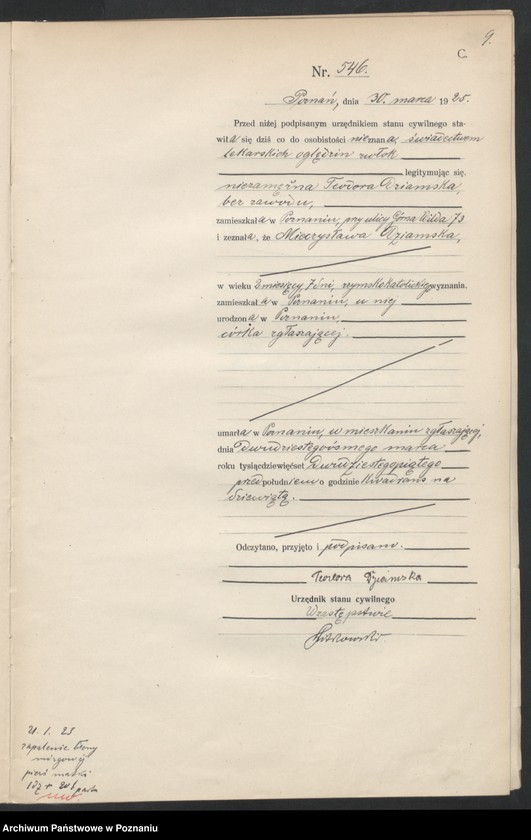 9.
C.
Nr. 546.
Poznań, dnia 30. marca 1925.
Przed niżej podpisanym urzędnikiem stanu cywilnego sta-
wiła się dziś co do osobistości nieznana, świadectwem
lekarskich oględzin zwłok
legitymując się.
niezamężna Teodora Dziamska,
bez zawodu,
zamieszkała w Poznaniu, przy ulicy Górna Wilda 73
i zeznała, że Mieczysława Dziamska,
w wieku 2 miesięcy, 7 dni, rzymskokatolickiego wyznania,
zamieszkała w Poznaniu, u niej
urodzona w Poznaniu,
córka zgłaszającej.
umarła w Poznaniu, w mieszkaniu zgłaszającej,
dnia Dwudziestegoósmego marca
roku tysiącdziewięćset Dwudziestegopiątego
przedpołudniem o godzinie kwadrans na
dziewiątą.
Odczytano, przyjęto i podpisano.
Teodora Dziamska
Urzędnik stanu cywilnego
W zastępstwie
21. 1. 25
zapalenie błony
mózgowej
pierś matki
Archiwum Państwowe w Poznaniu